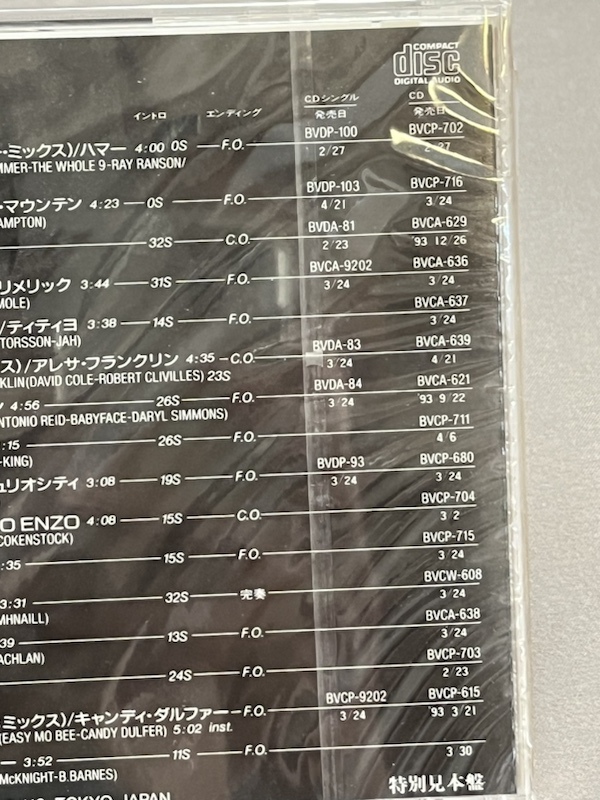 COMPACT
disc
DIGITAL AUDIO
イントロ エンディング CDシングル 発売日 CD 発売日
・ミックス)/ハマー 4:00 0S F.O. BVDP-100 2/27 BVCP-702
MMER-THE WHOLE 9-RAY RANSON/
・マウンテン 4:23 0S F.O. BVDP-103 4/21 BVCP-716 3/24
AMPTON)
32S C.O. BVDA-81 2/23 BVCA-629 '93 12/26
リメリック 3:44 31S F.O. BVCA-9202 3/24 BVCA-636 3/24
MOLE)
/ティティヨ 3:38 14S F.O. BVCA-637 3/24
TORSSON-JAH)
ス)/アレサ・フランクリン 4:35 C.O. BVDA-83 3/24 BVCA-639 4/21
KLIN(DAVID COLE-ROBERT CLIVILLES) 23S
4:56 26S F.O. BVDA-84 3/24 BVCA-621 '93 9/22
NTONIO REID-BABYFACE-DARYL SIMMONS)
:15 26S F.O. BVCP-711 4/6
-KING)
ュリオシティ 3:08 19S F.O. BVDP-93 3/24 BVCP-680 3/24
O ENZO 4:08 15S C.O. BVCP-704 3/2
COKENSTOCK)
:35 15S F.O. BVCP-715 3/24
3:31 32S 完奏 BVCW-608 3/24
MHNAILL)
39 13S F.O. BVCA-638 3/24
ACHLAN)
24S F.O. BVCP-703 2/23
ミックス)/キャンディ・ダルファー F.O. BVCP-9202 3/24 BVCP-615 '93 3/21
(EASY MO BEE-CANDY DULFER) 5:02 inst.
ー 3:52 11S F.O. 3/30
McKNIGHT-B.BARNES)
特別見本盤
TOKYO, JAPAN